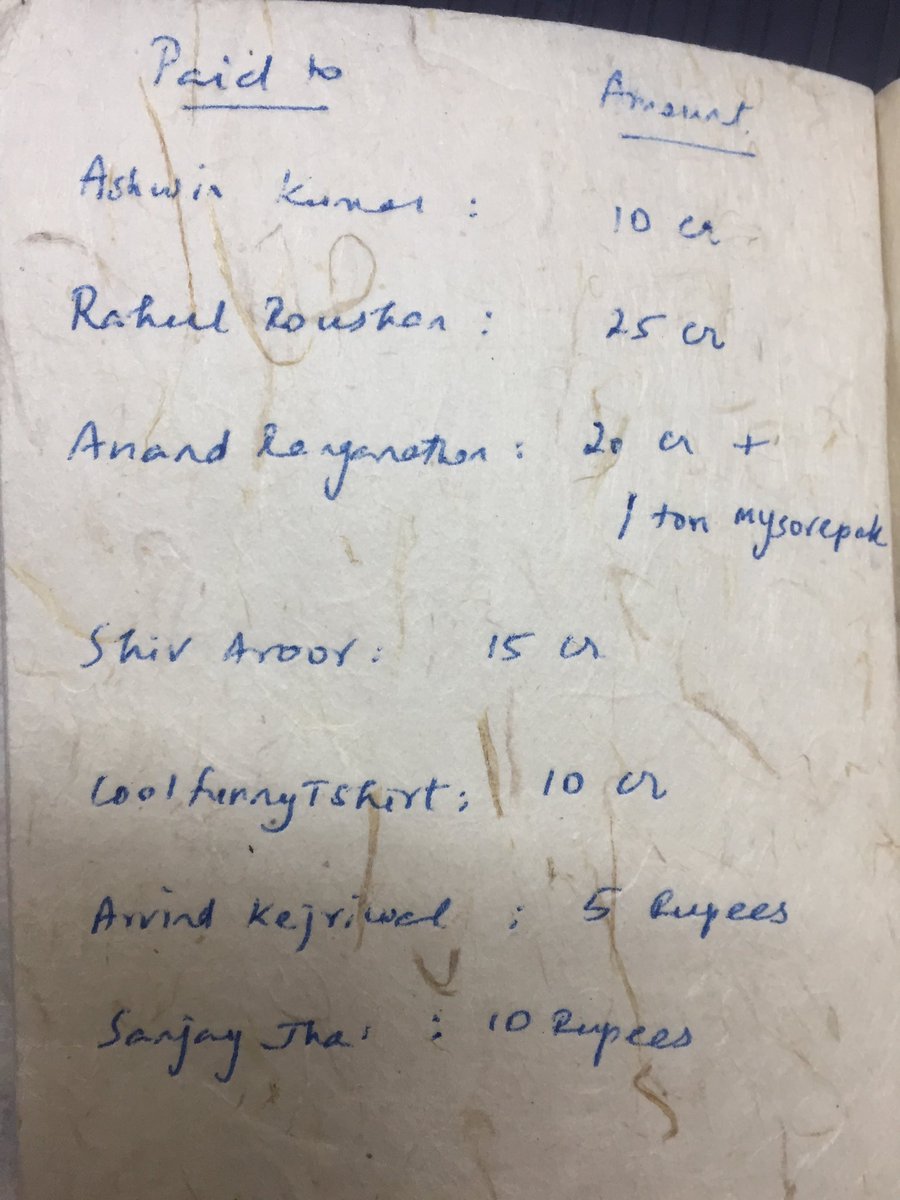 Paid to Amount
Ashwin Kumar : 10 cr
Rahul Roushan : 25 cr
Anand Ranganathan : 20 cr +
1 ton mysorepak
Shiv Aroor : 15 cr
CoolfunnyTshirt : 10 cr
Arvind Kejriwal : 5 Rupees
Sanjay Jha : 10 Rupees